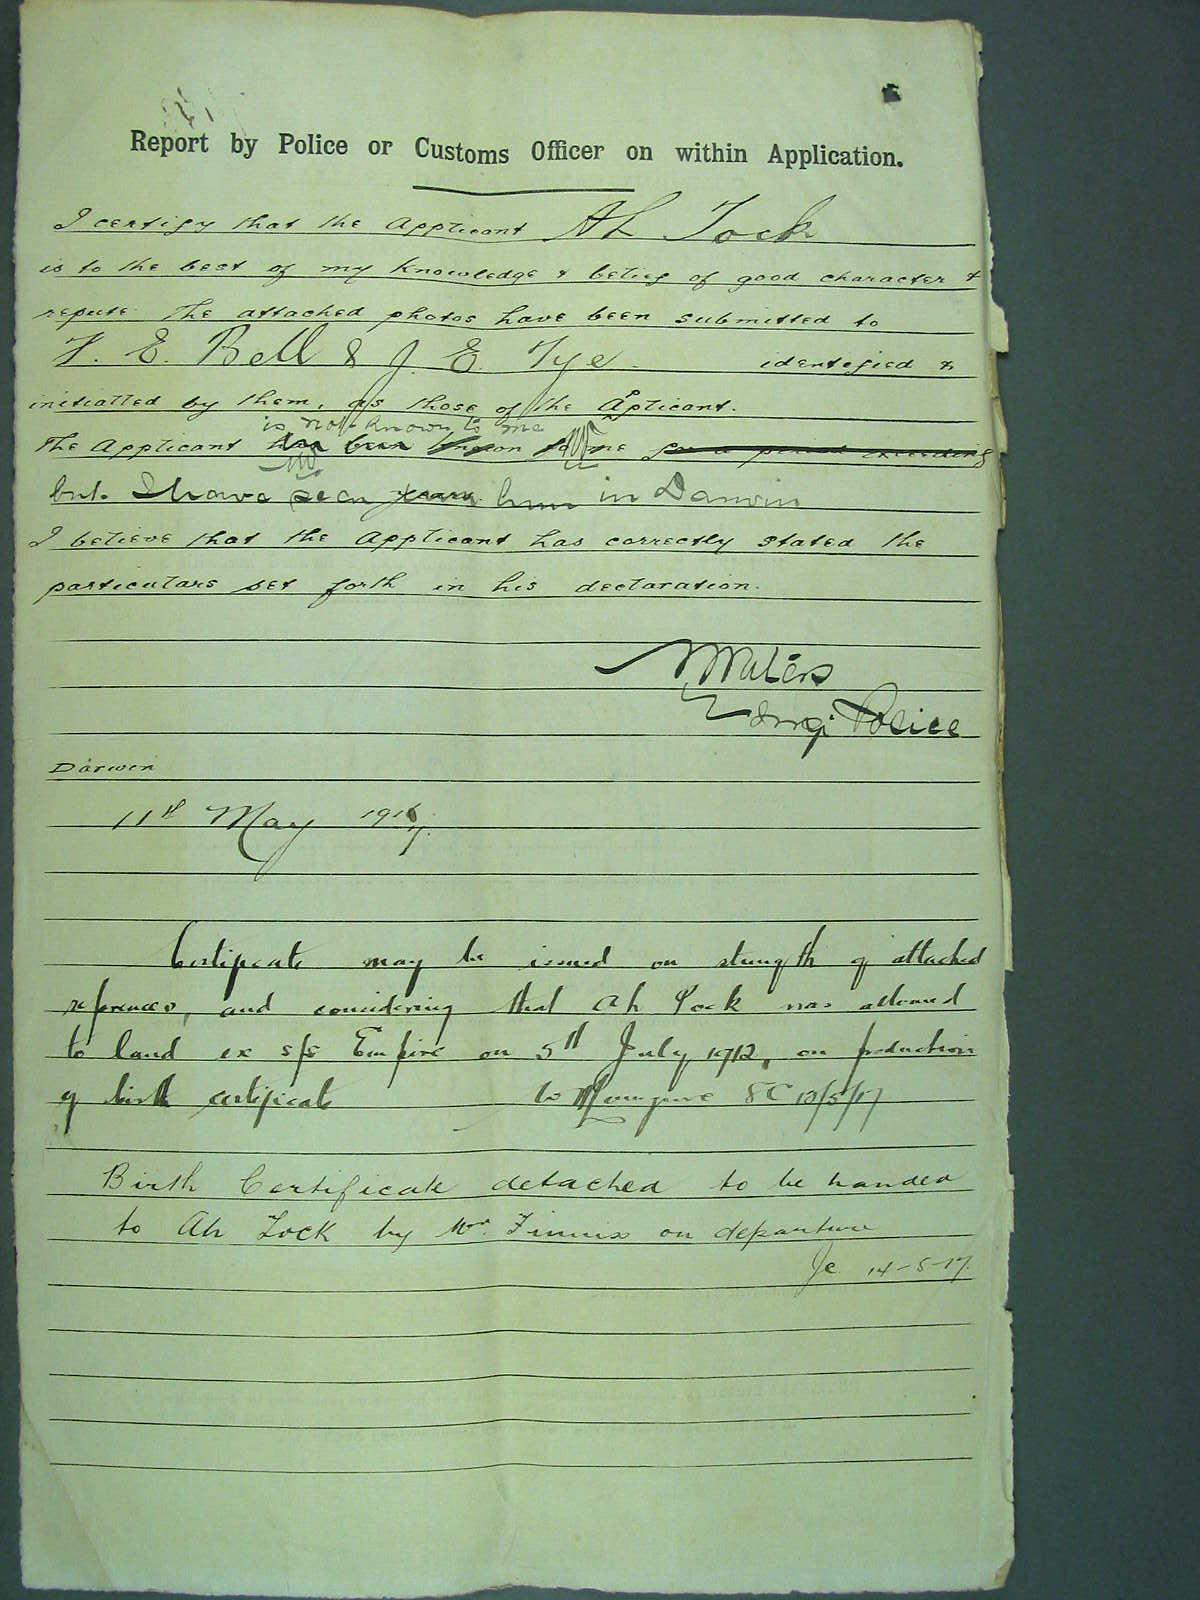 Report by Police or Customs Officer on within Application.
I certify that the Applicant Ah Tock
is to the best of my knowledge & belief of good character &
repute. The attached photos have been submitted to
F. E. Bell & J. E. Tye identified &
initialled by them, as those of the Applicant.
is not known to me
The Applicant has been known to me for a period exceeding
but I have seen years him in Darwin
I believe that the Applicant has correctly stated the
particulars set forth in his declaration.
NWaters
Insp Police
Darwin
11th May 1917.
Certificate may be issued on strength of attached
references, and considering that Ah Tock was allowed
to land ex s/s Empire on 5th July 1912, on production
of birth certificate SC 12/5/17
Birth Certificate detached to be handed
to Ah Tock by Mr. Finniss on departure
14-5-17.